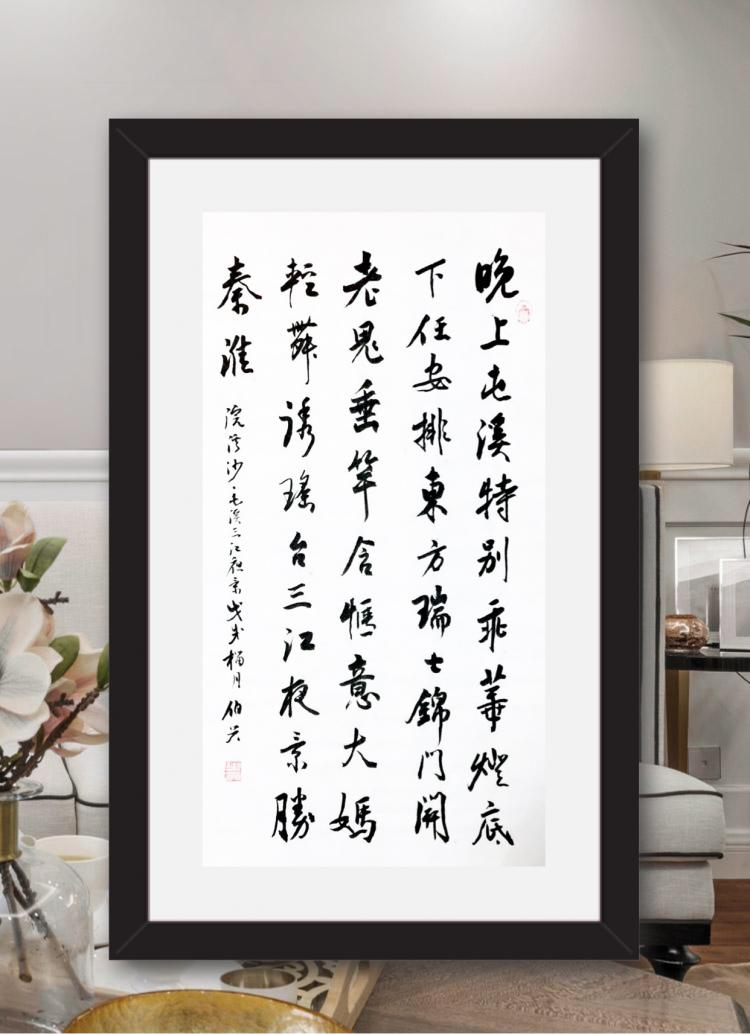 晚上屯溪特别乖華燈底
下任安排東方瑞士錦門開
老鬼垂竿含惬意大媽
輕舞誘瑤台三江夜景勝
秦淮
浣溪沙·屯溪三江夜景戊戌月伯兴